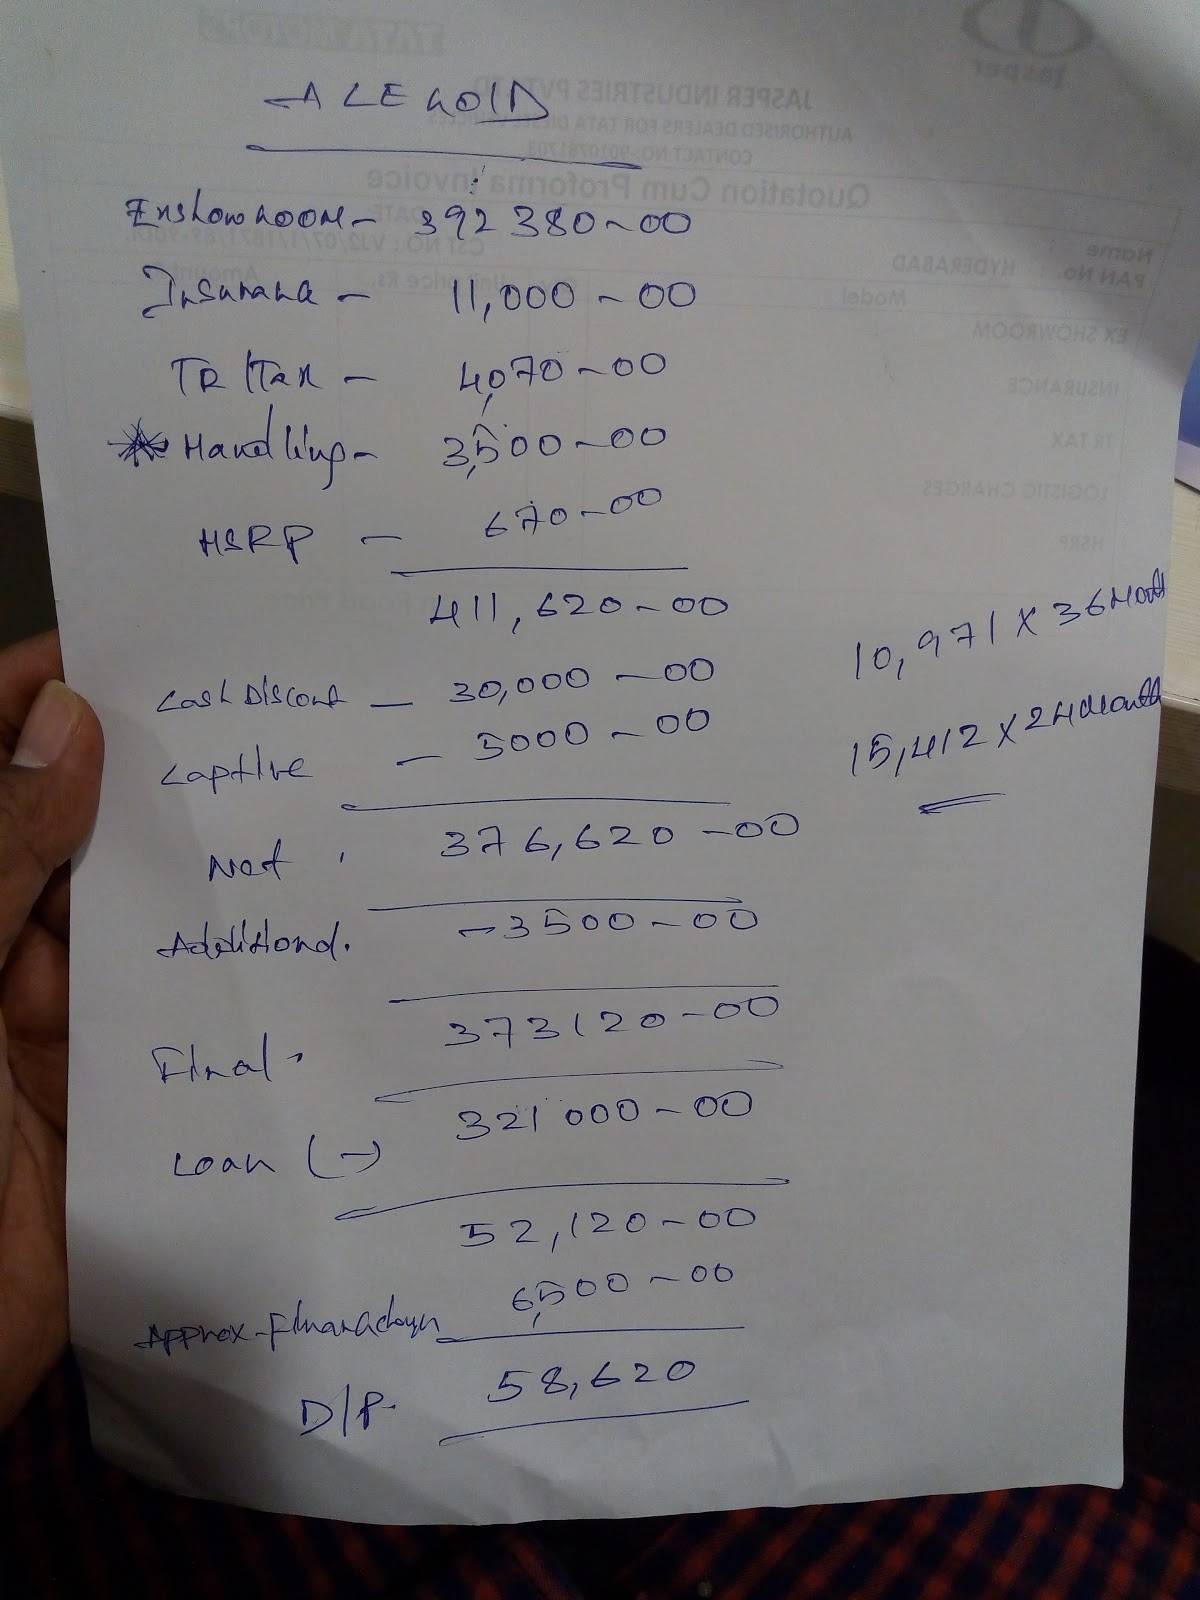 ACE GOLD
Exshowroom - 392380-00
Insurance - 11,000-00
TR/Tax - 4,070-00
Handling - 3,500-00
HSRP - 670-00
411,620-00
Cash Discount - 30,000-00
Captive - 5000-00
Net 376,620-00
Additional. -3500-00
Final 373120-00
Loan (-) 321000-00
52,120-00
Approx 6,500-00
D/P. 58,620
10,971 X 36 Month
15,412 X 24 Month
Jasper
TATA MOTORS
JASPER INDUSTRIES PVT LTD
AUTHORISED DEALERS FOR TATA DIESEL VEHICLES
CONTACT NO:
Quotation Cum Proforma Invoice
Name
PAN No. HYDERABAD
DATE
Model Unit price Rs. Amount
EX SHOWROOM
INSURANCE
TR TAX
LOGISTIC CHARGES
HSRP